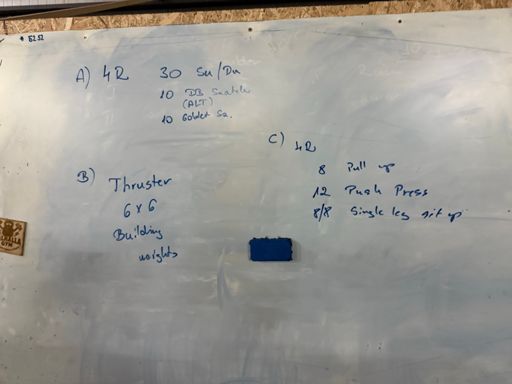 A) 4R 30 Su/Du
10 DB Snatch
(ALT)
10 Goblet Sq.
B) Thruster
6 x 6
Building
weights
C) 4R
8 Pull up
12 Push Press
8/8 Single leg sit up
GYM